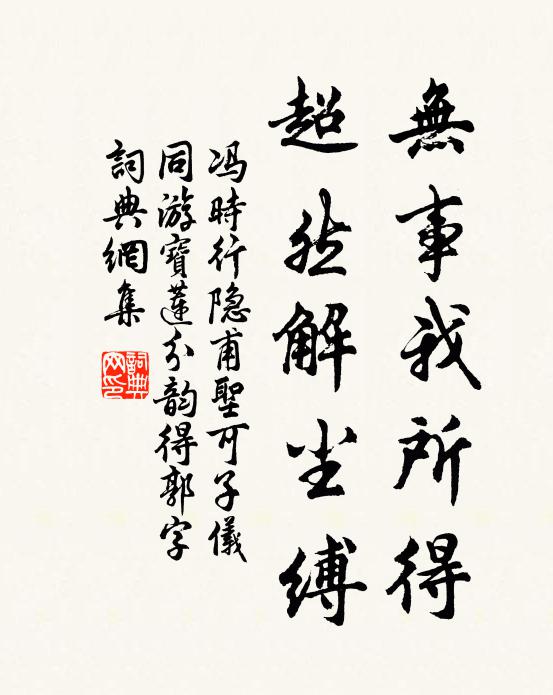 無事我所得
超然解尘縛
冯時行隐甫聖可子儀
同游寶蓮分韵得郭字
詞典網集
詞典网印